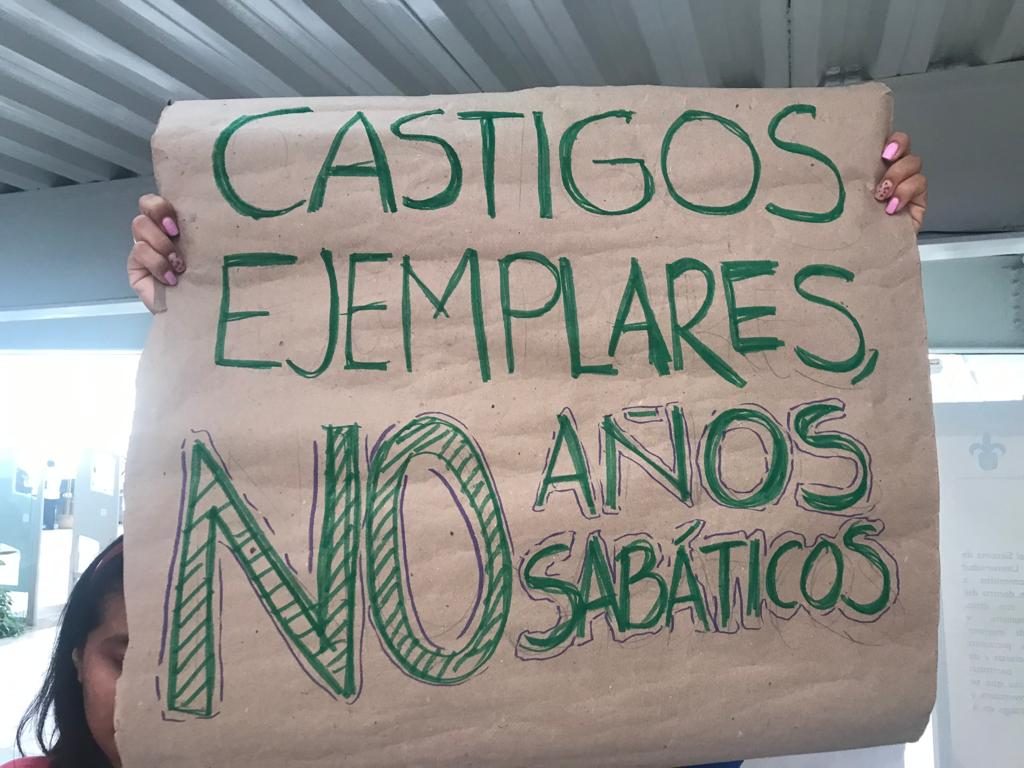 CASTIGOS
EJEMPLARES,
NO AÑOS
SABÁTICOS